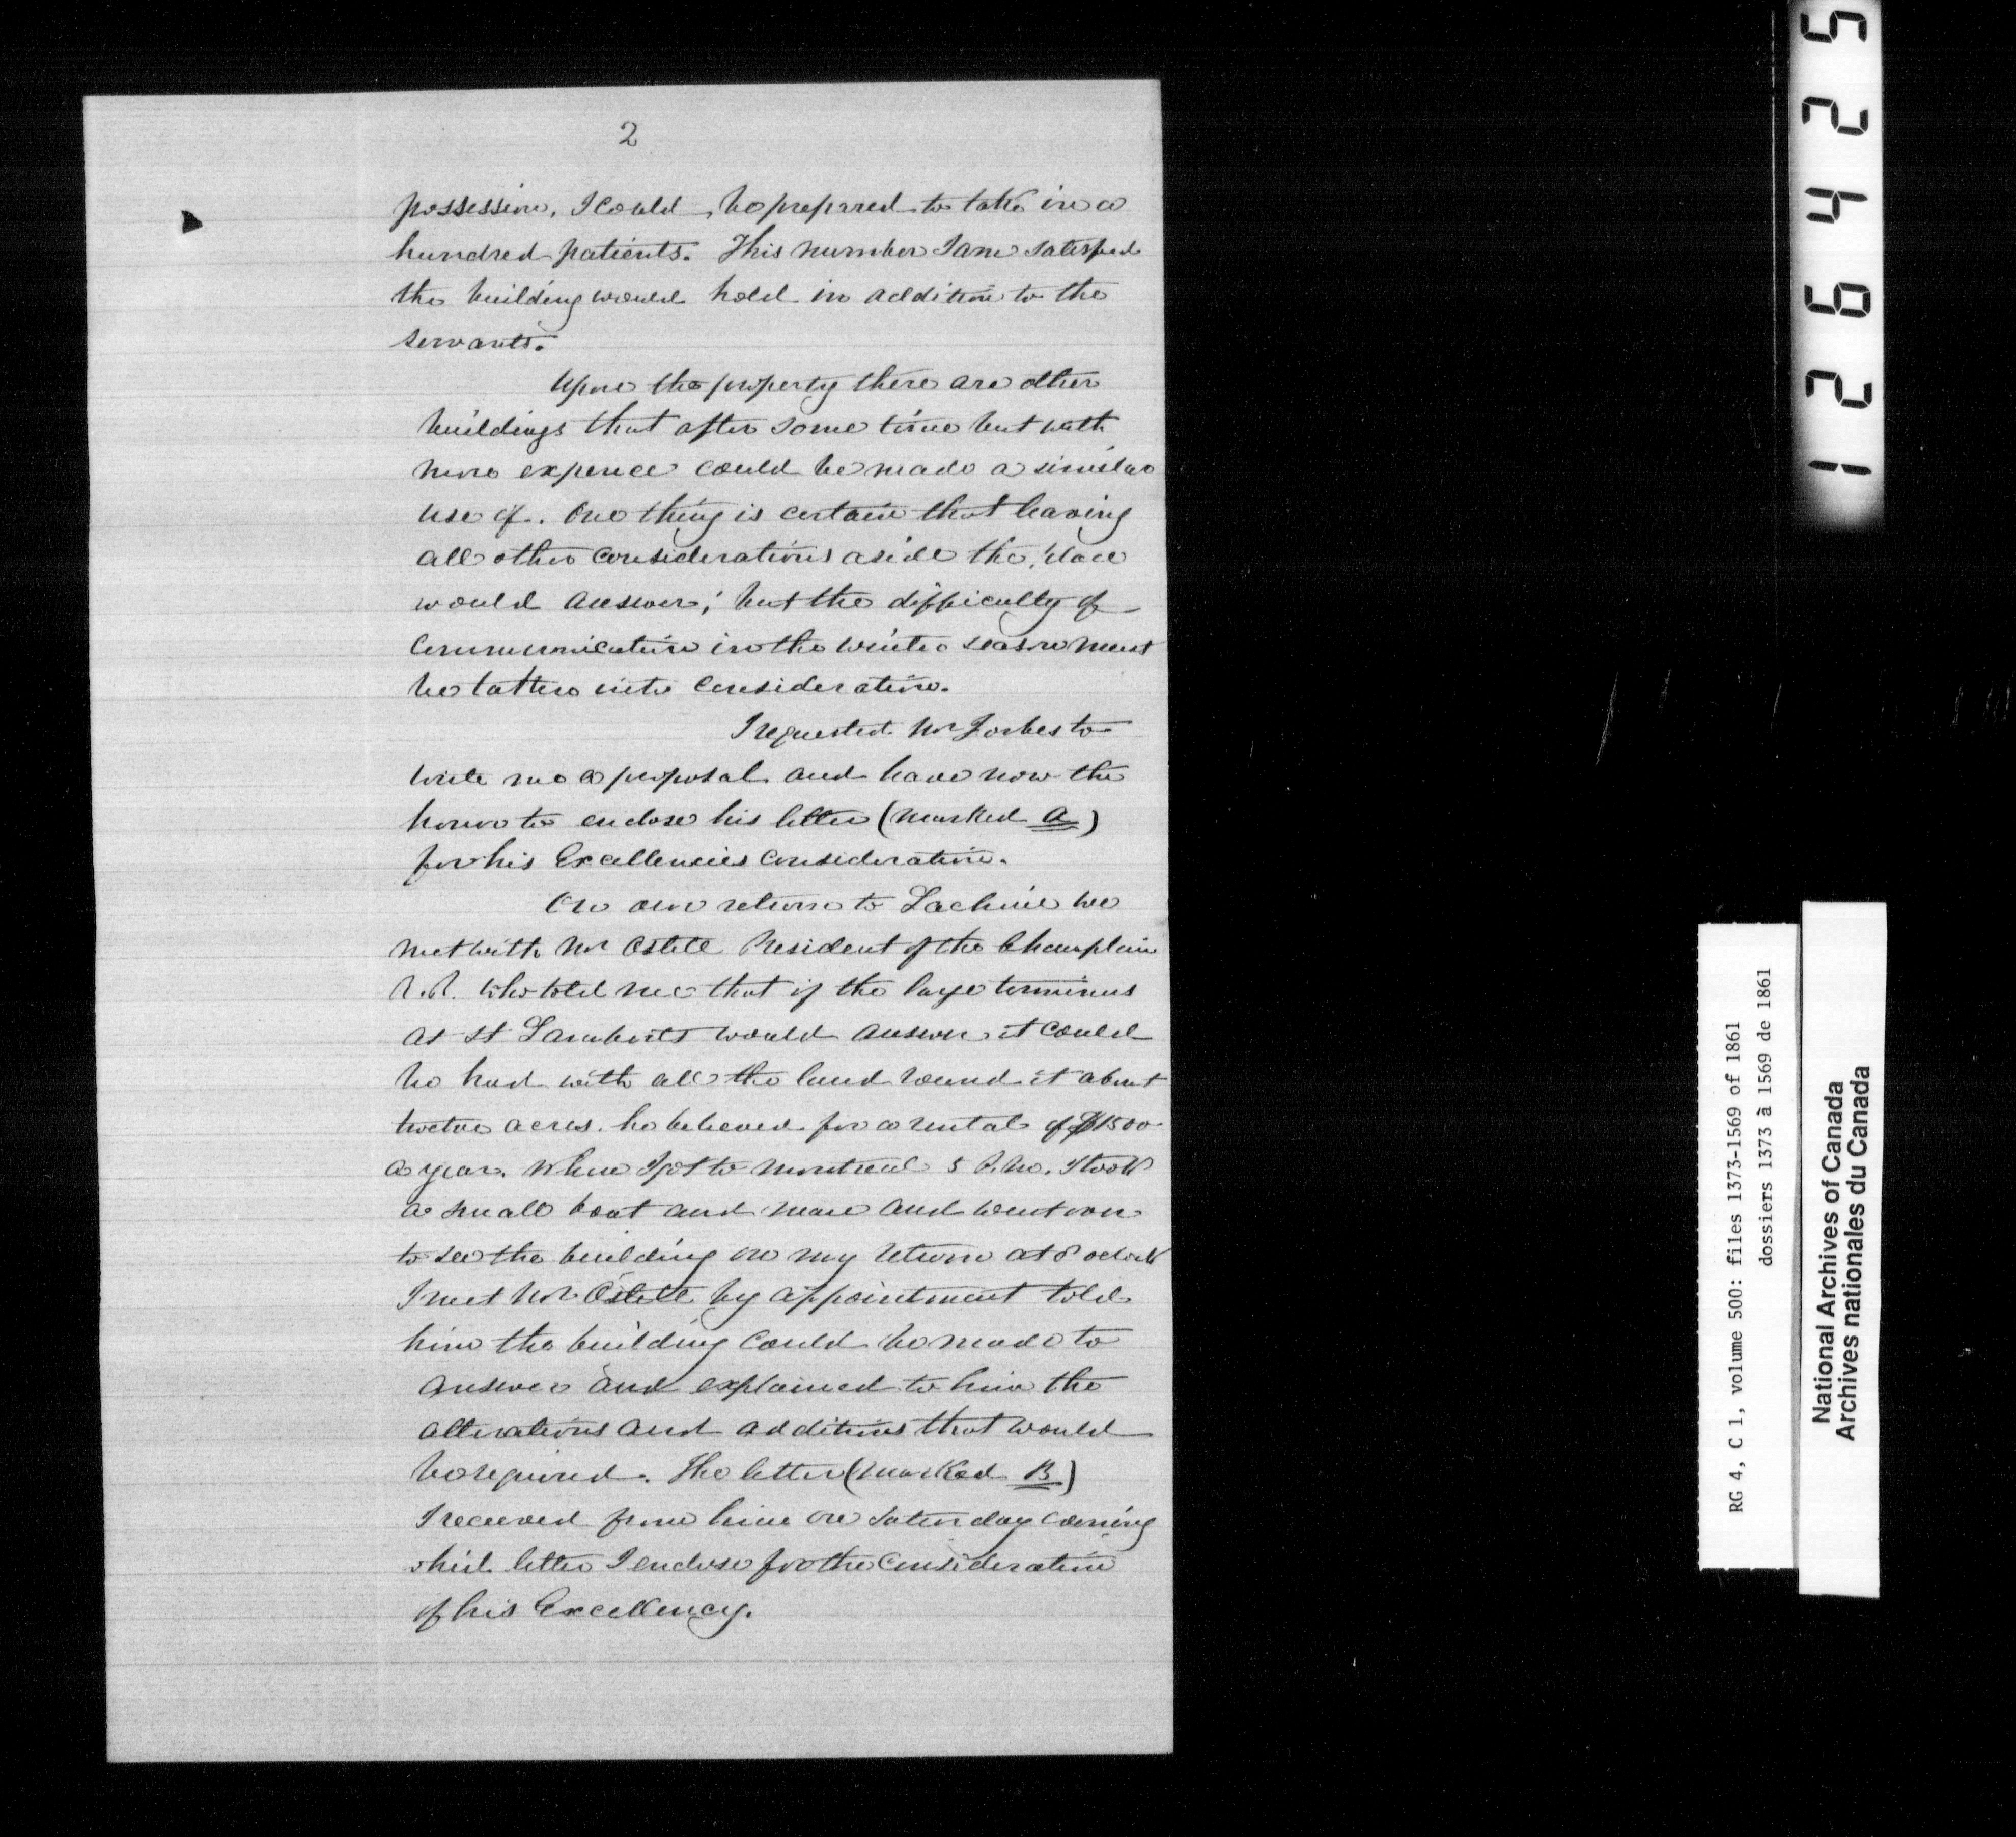 2
possession, I could be prepared to take in a
hundred patients. This number I am satisfied
the building would hold in addition to the
servants.
Upon the property there are other
buildings that after some time but with
more expence could be made a similar
use of. One thing is certain that leaving
all other considerations aside the place
would answer; but the difficulty of
communication in the winter season must
be taken into consideration.
I requested Mr Forbes to
write me a proposal and have now the
honor to enclose his letter (marked A)
for his Excellencies consideration.
On our return to Lachine we
met with Mr Ostell President of the Champlain
R.R. who told me that if the large terminus
at St Lamberts would answer it could
be had with all the land round it about
twelve acres. he believed for a rental of $1500
a year. When I got to Montreal 5 P.M. I took
a small boat and man and went over
to see the building on my return at 8 oclock
I met Mr Ostell by appointment told
him the building could be made to
answer and explained to him the
alterations and additions that would
be required. The letter (marked B)
I received from him on Saturday evening
which letter I enclose for the consideration
of his Excellency.
126425
RG 4, C 1, volume 500: files 1373-1569 of 1861
dossiers 1373 à 1569 de 1861
National Archives of Canada
Archives nationales du Canada